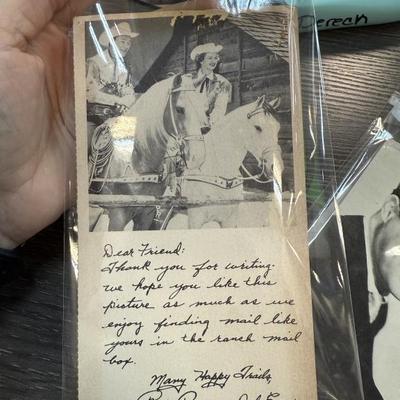 Derean
Dear Friend:
Thank you for writing.
We hope you like this
picture as much as we
enjoy finding mail like
yours in the ranch mail
box.
Many Happy Trails,